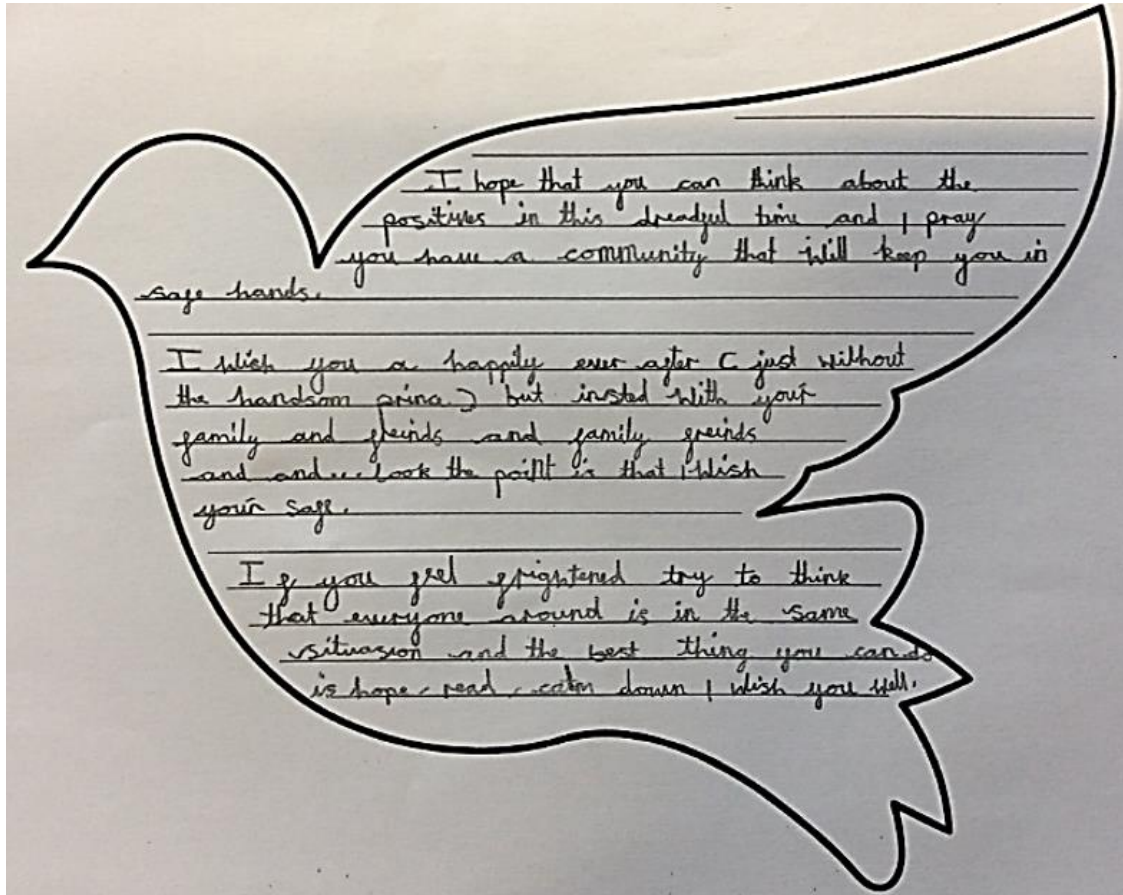 I hope that you can think about the
positives in this dreadful time and I pray
you have a community that will keep you in
safe hands.
I wish you a happily ever after ( just without
the handsom prince ) but insted with your
family and freinds and family freinds
and and... Look the point is that I wish
your safe.
If you feel frightened try to think
that everyone around is in the same
situasion and the best thing you can do
is hope, read, calm down I wish you well.